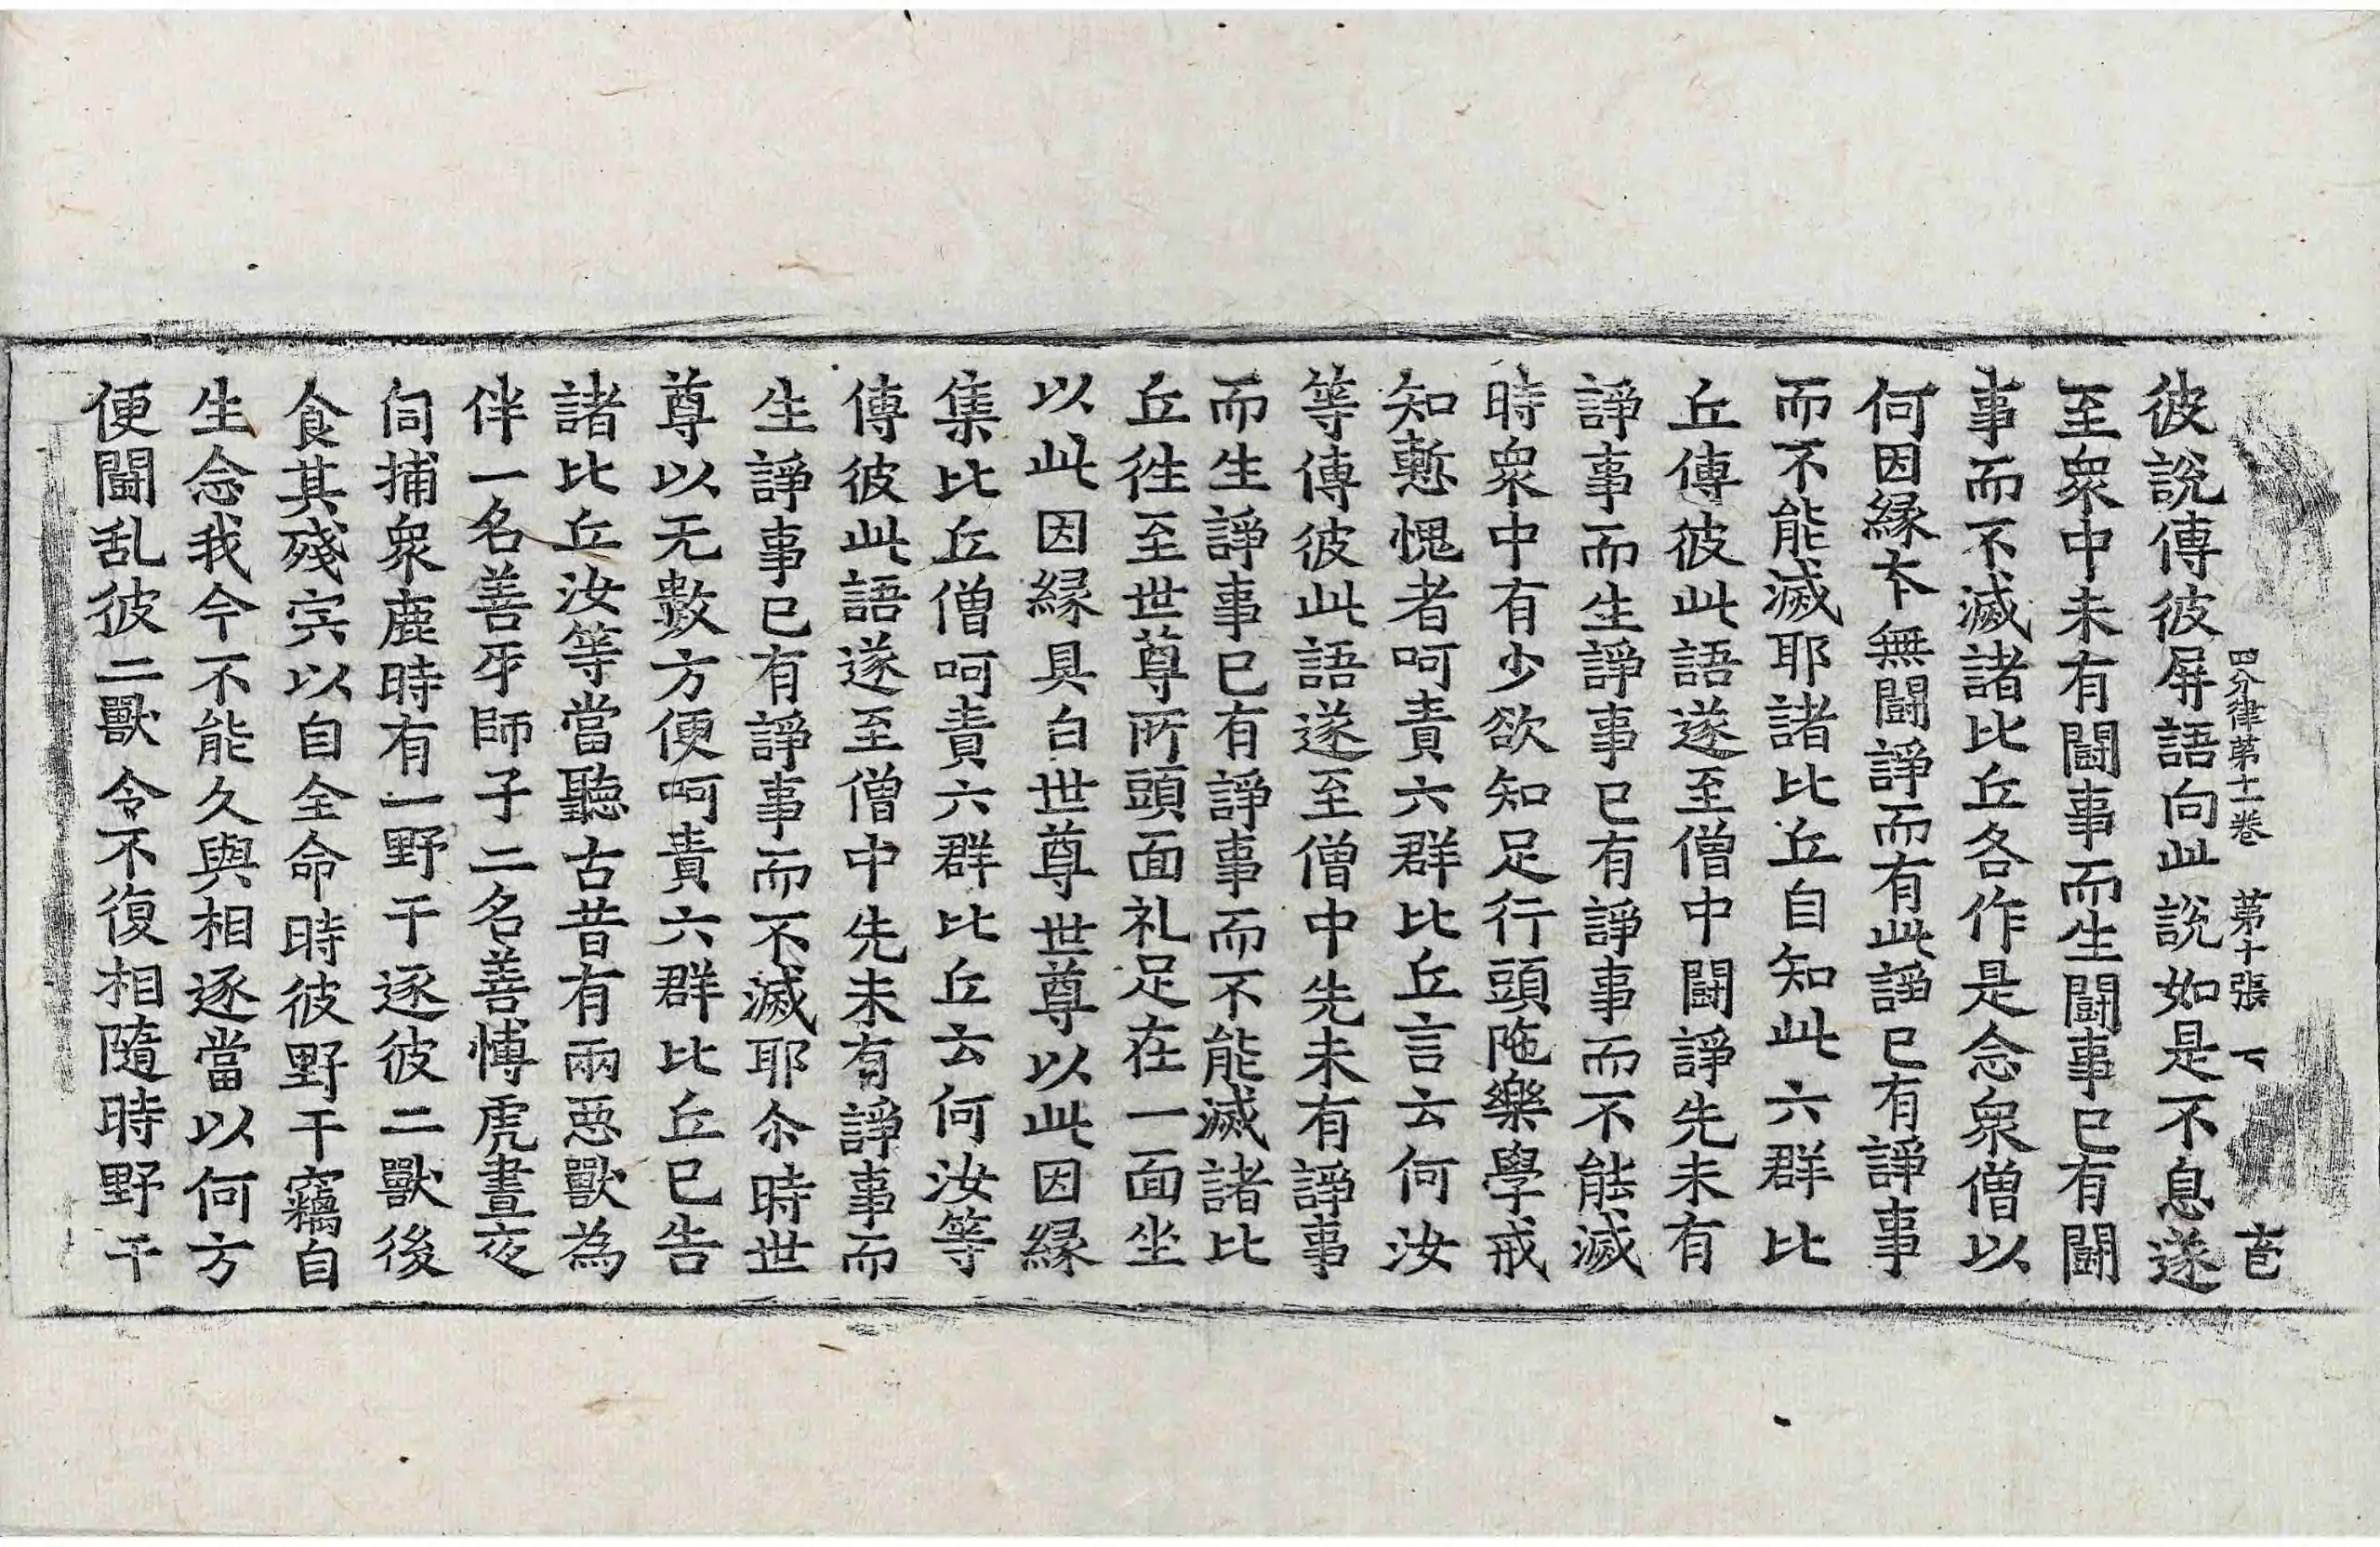 四分律第十一卷　第十張　下
彼說傳彼屏語向此說如是不息遂
至衆中未有鬪事而生鬪事已有鬪
事而不滅諸比丘各作是念衆僧以
何因縁本無鬪諍而有此諍已有諍事
而不能滅耶諸比丘自知此六群比
丘傳彼此語遂至僧中鬪諍先未有
諍事而生諍事已有諍事而不能滅
時衆中有少欲知足行頭陁樂學戒
知慙愧者呵責六群比丘言云何汝
等傳彼此語遂至僧中先未有諍事
而生諍事已有諍事而不能滅諸比
丘徃至世尊所頭面礼足在一面坐
以此因縁具白世尊世尊以此因縁
集比丘僧呵責六群比丘云何汝等
傳彼此語遂至僧中先未有諍事而
生諍事已有諍事而不滅耶尒時世
尊以无數方便呵責六群比丘已告
諸比丘汝等當聽古昔有兩惡獸為
伴一名善牙師子二名善愽虎晝夜
伺捕衆鹿時有一野干逐彼二獸後
食其殘宍以自全命時彼野干竊自
生念我今不能久與相逐當以何方
便鬪乱彼二獸令不復相隨時野干